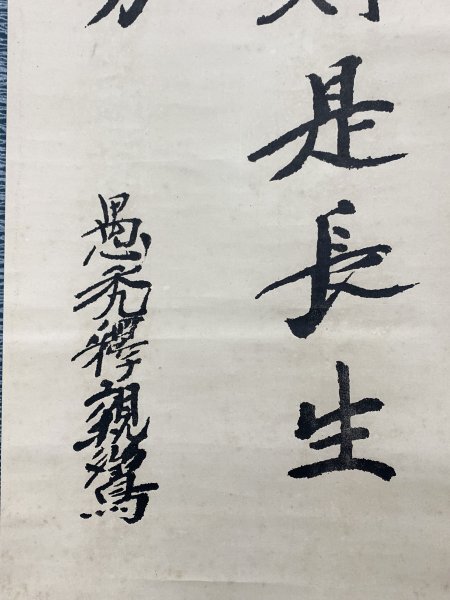 則是長生
方
愚禿釋親鸞